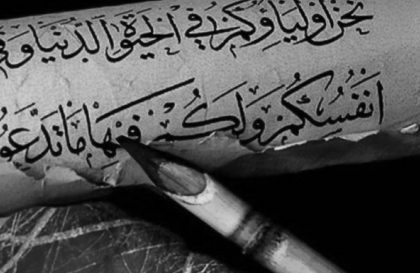 نحن أولياؤكم في الحيوة الدنيا وفي
أنفسكم ولكم فيها ما تدعو